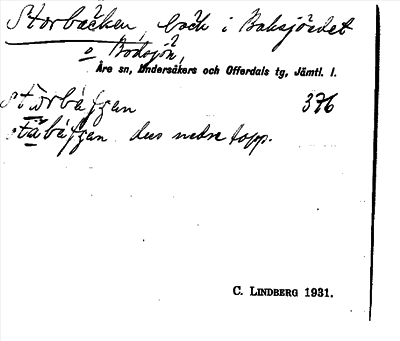 Storbäcken, bäck i Baksjösdet
o Bodsjön,
Åre sn, Undersåkers och Offerdals tg, Jämtl. l.
376
dess nedre lopp.
C. LINDBERG 1931.